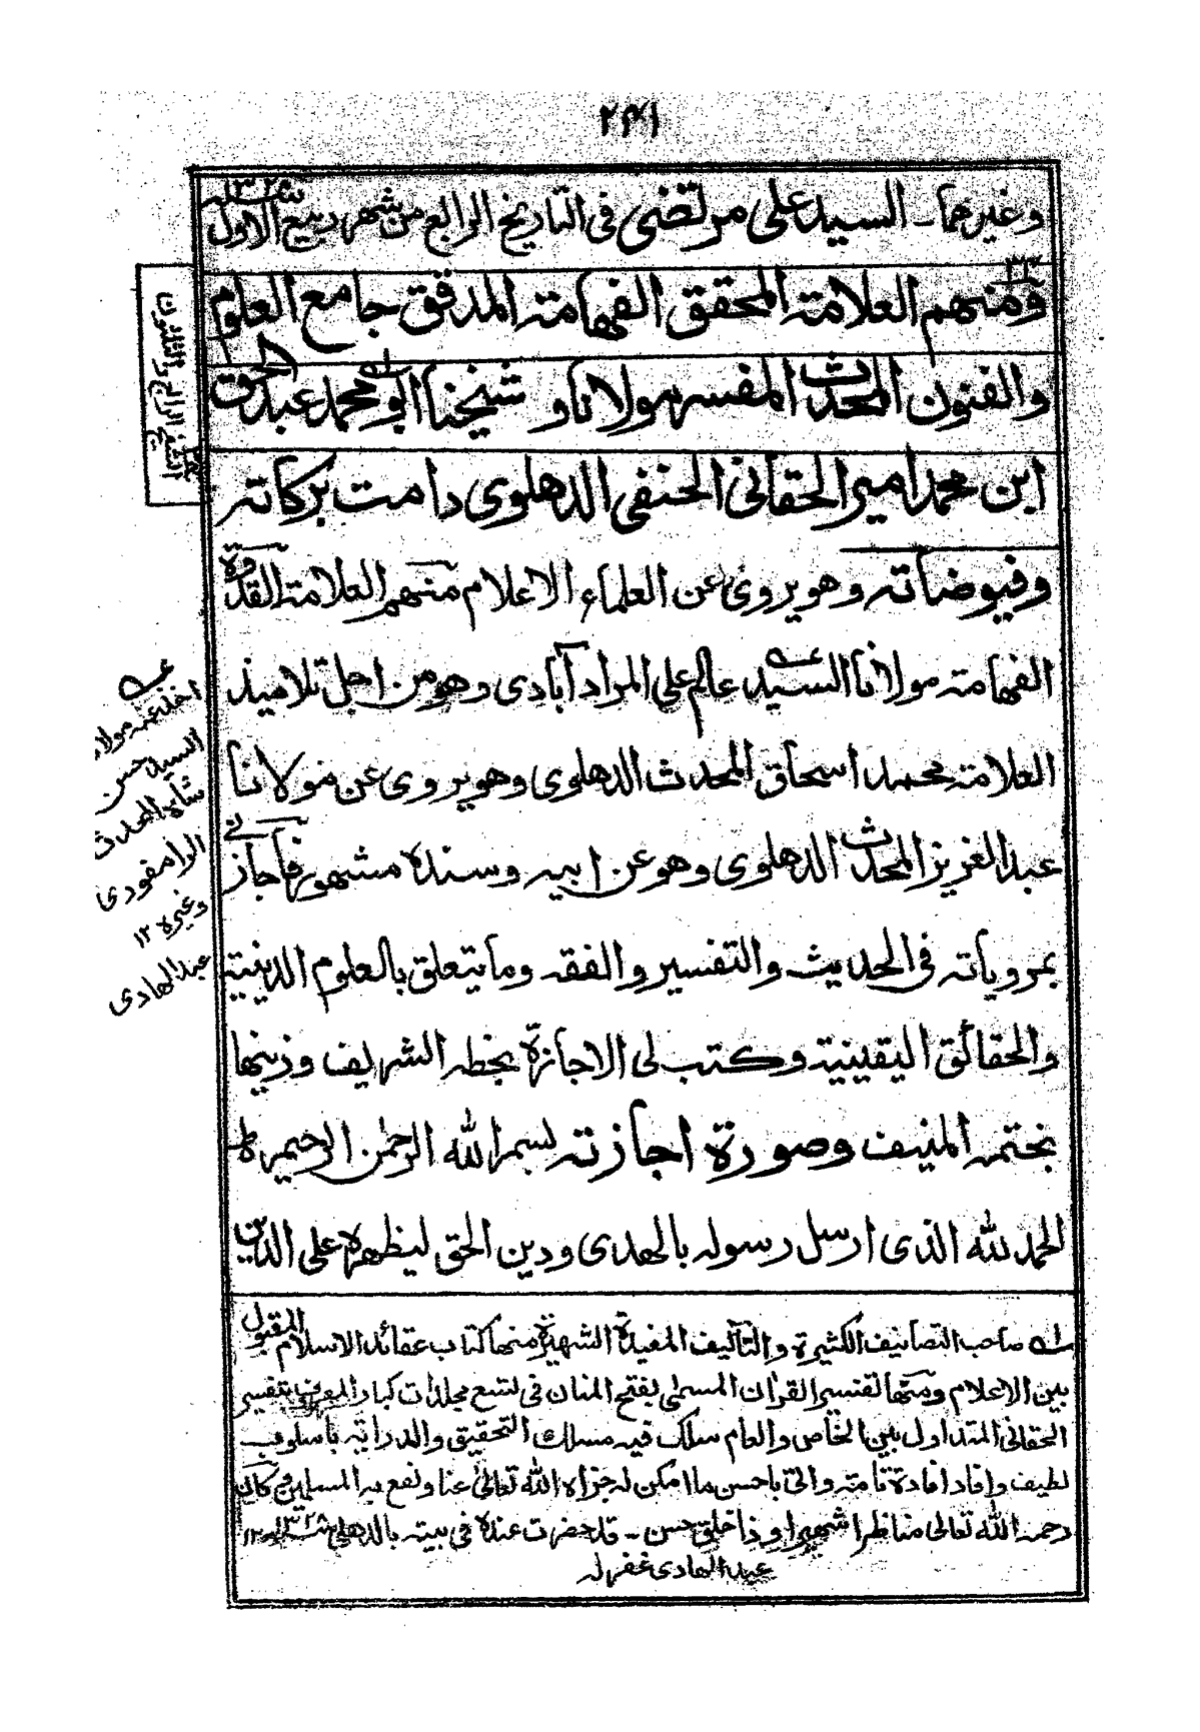 ٢٤١
وغيرهما ـ السيد على مرتضى فى التاريخ الرابع من شهر ربيع الاول سنة ١٣٢٥
ومنهم العلامة المحقق الفهامة المدقق جامع العلوم
والفنون المحدث المفسر مولانا و شيخنا ابو محمد عبد الحق
ابن محمد امير الحقانى الحنفى الدهلوى دامت بركاته
وفيوضاته وهو يروى عن العلماء الاعلام منهم العلامة القدوة
الفهامة مولانا السيد عالم على المراد آبادى وهو من اجل تلاميذ
العلامة محمد اسحاق المحدث الدهلوى وهو يروى عن مولانا
عبد العزيز المحدث الدهلوى وهو عن ابيه وسنده مشهور فاجازنى
بمروياته فى الحديث والتفسير والفقه وما يتعلق بالعلوم الدينية
والحقائق اليقينية وكتب لى الاجازة بخطه الشريف وزينها
بختمه المنيف وصورة اجازته بسم الله الرحمن الرحيم ط
الحمد لله الذى ارسل رسوله بالهدى ودين الحق ليظهره على الدين
الشيخ الرابع والثلثون
عـه
اخذ عنه مولانا
السيد حسن
شاه المحدث
الرامفورى
وغيره ١٢
عبد الهادى
لـه صاحب التصانيف الكثيرة والتآليف المفيدة الشهيرة منها كتاب عقائد الاسلام المقبول
بين الاعلام ومنها تفسير القران المسمى بفتح المنان فى تسع مجلدات كبار المعروف بتفسير
الحقانى المتداول بين الخاص والعام سلك فيه مسلك التحقيق والدراية باسلوب
لطيف وافاد افادة تامة واتى باحسن ما امكن له جزاه الله تعالى عنا ونفع به المسلمين وكان
رحمه الله تعالى مناظرا شهيرا وذا خلق حسن ـ قد حضرت عنده فى بيته بالدهلى ١٢
عبد الهادى غفر له